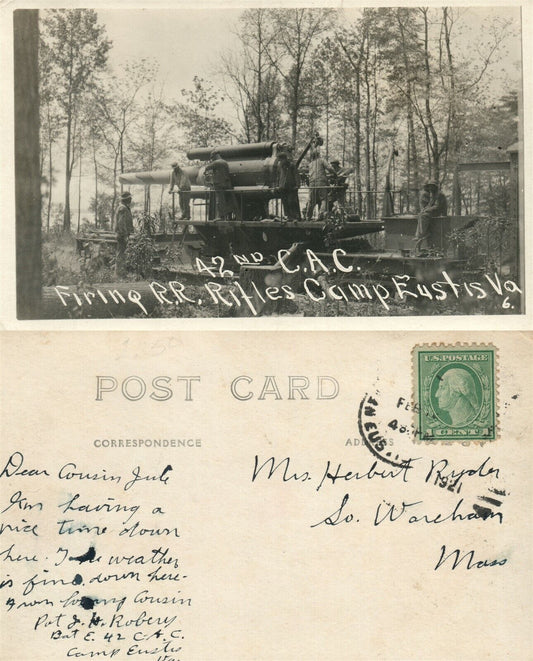 42ND C.A.C.
Firing R.R. Rifles Camp Eustis Va
6.
POST CARD
CORRESPONDENCE
ADDRESS
U.S. POSTAGE
FEB
EUS
1921
Dear Cousin Jule
I'm having a
nice time down
here. The weather
is fine down here.
Your loving Cousin
Pvt J. H. Robery
Bat E. 42 C.A.C.
Camp Eustis
Va
Mrs. Herbert Ryder
So. Wareham
Mass